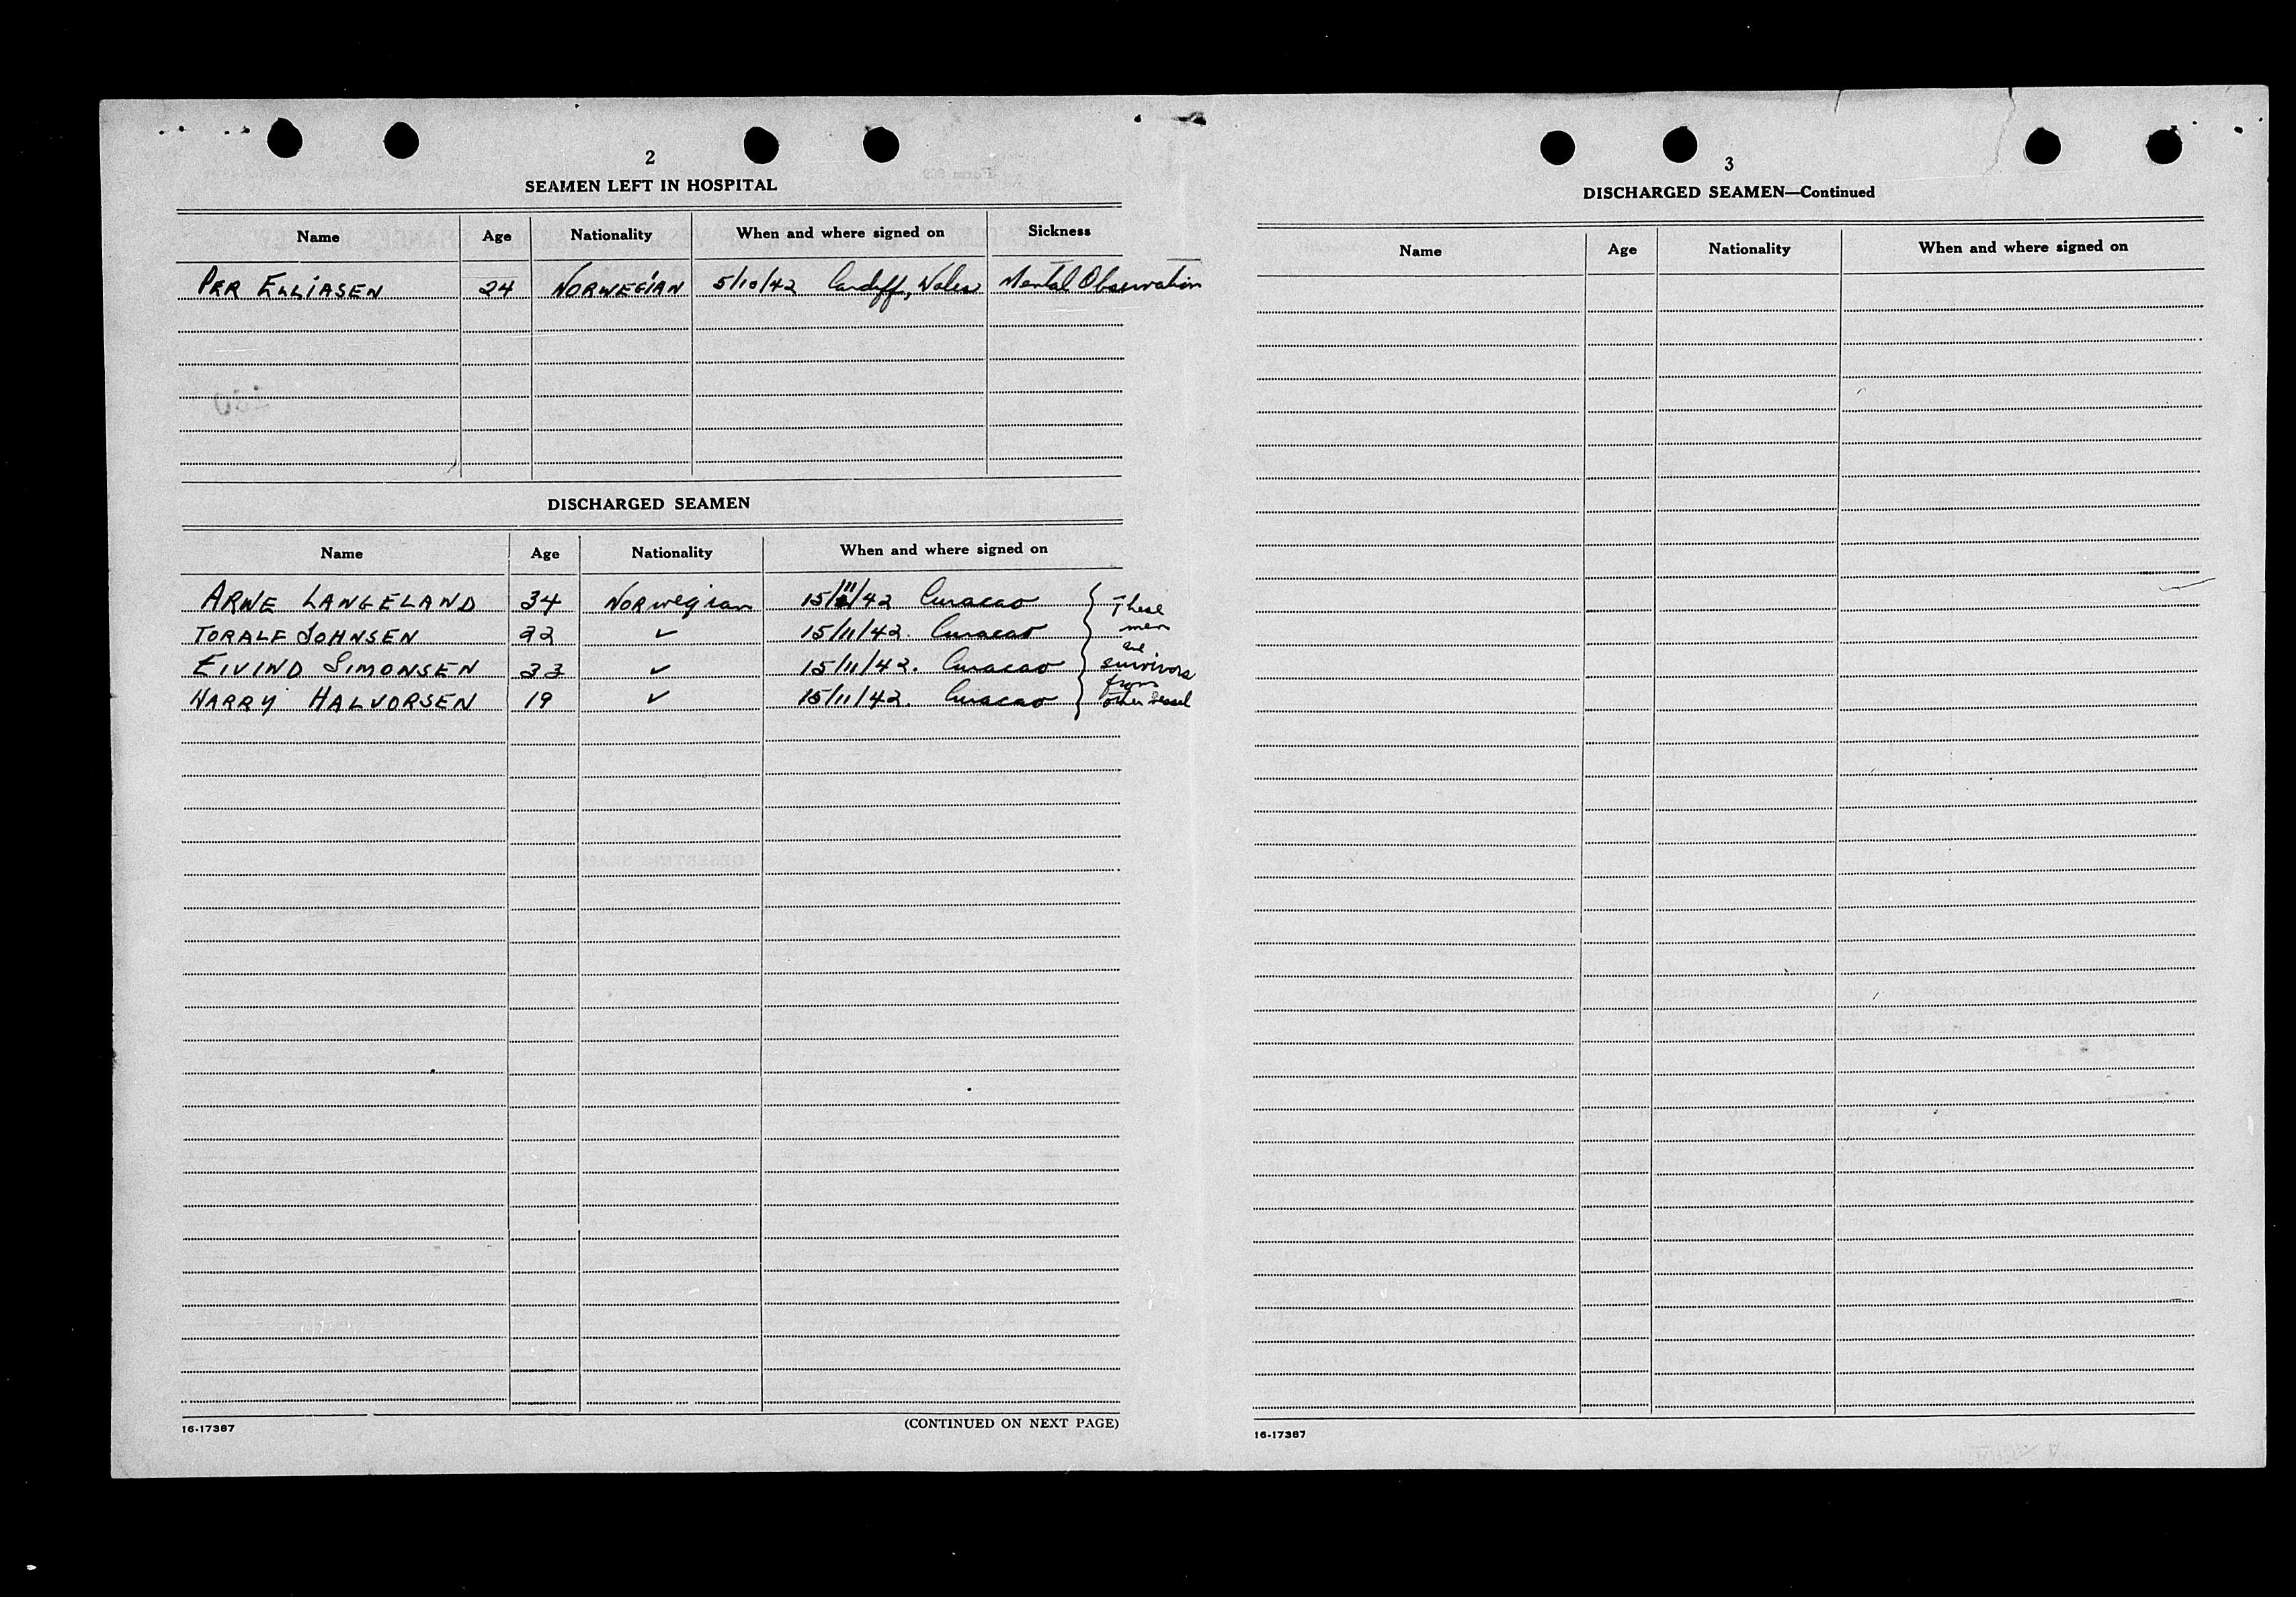 2
SEAMEN LEFT IN HOSPITAL
Name Age Nationality When and where signed on Sickness
PER ELLIASEN 24 NORWEGIAN 5/10/42 Cardiff, Wales Mental Observation
DISCHARGED SEAMEN
Name Age Nationality When and where signed on
ARNE LANGELAND 34 Norwegian 15/11/42 Curacao
TORALF JOHNSEN 22 ✓ 15/11/42. Curacao
EIVIND SIMONSEN 33 ✓ 15/11/42. Curacao
HARRY HALVORSEN 19 ✓ 15/11/42. Curacao
These
men
are
survivors
from
other vessel
16-17387
(CONTINUED ON NEXT PAGE)
3
DISCHARGED SEAMEN—Continued
Name Age Nationality When and where signed on
16-17387